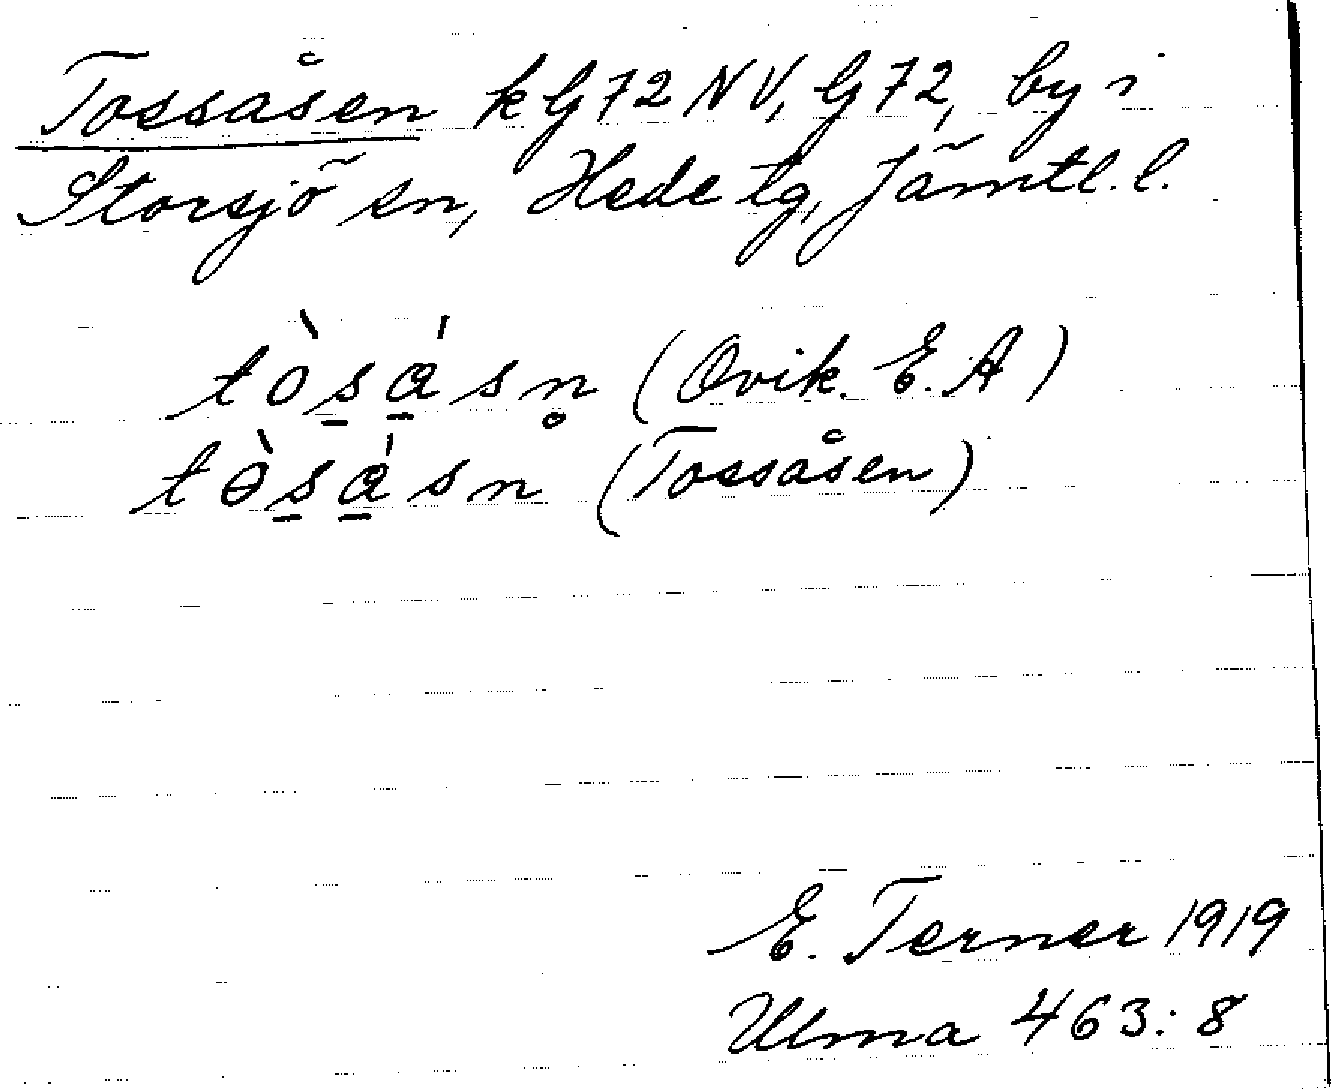 Tossåsen kG72NV, G72, by i
Storsjö sn, Hede tg, Jämtl. l.
tòs̱ǻ̱sn̥ (Ovik. E. A)
tɵ̀s̱ǻ̱sn (Tossåsen)
E. Terner 1919
Ulma 463:8